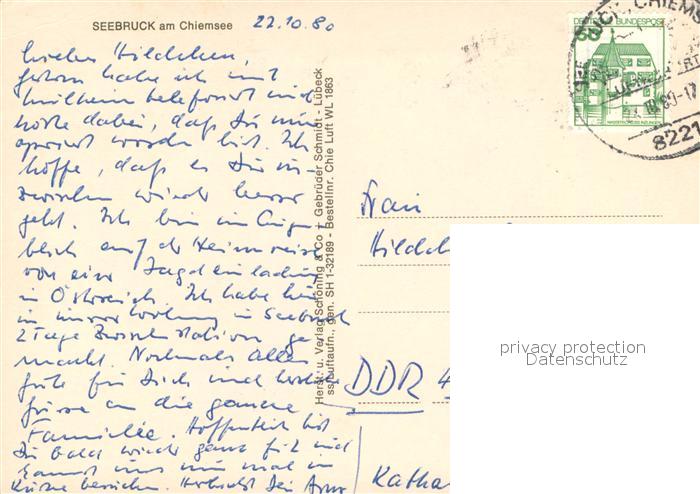 SEEBRUCK am Chiemsee 22.10.80
Liebes Hildchen,
gestern habe ich mit
Mülheim telefoniert und
hörte dabei, daß Du nun
operiert worden bist. Ich
hoffe, daß es Dir in-
zwischen wieder besser
geht. Ich bin im Augen-
blick auf der Heimreise
von einer Jagdeinladung
in Österreich. Ich habe hier
in unserer Wohnung in Seebruck
2 Tage Zwischenstation ge-
macht. Nochmals alles
gute für Dich und herzl.
Grüsse an die ganze
Familie. Hoffentlich bist
Du bald wieder ganz fit und
kannst uns mal in
Kürze besuchen. Herzlichst Dein
Herst. u. Verlag Schöning & Co + Gebrüder Schmidt - Lübeck
ss/Luftaufn., gen. SH 1-32189 - Bestellnr. Chie Luft WL 1863
DEUTSCHE BUNDESPOST
WASSERSCHLOSS INZLINGEN
8221
Frau
DDR 4
Katha
privacy protection
Datenschutz